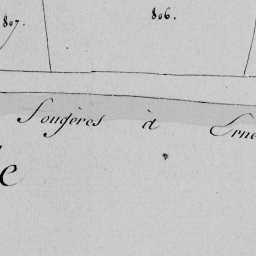 807.
806.
Fougères à Erné
e